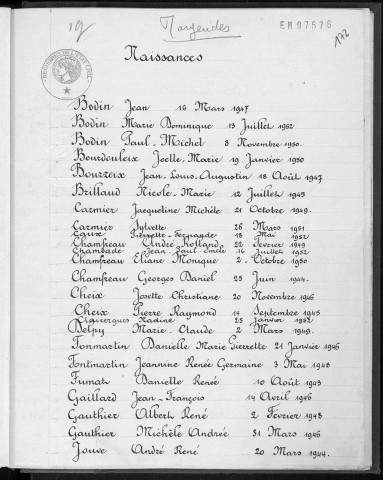 19
Margerides
EM 97576
172
Naissances
Bodin Jean 16 Mars 1947
Bodin Marie Dominique 13 Juillet 1952
Bodin Paul-Michel 8 Novembre 1950.
Bourdouleix Joelle-Marie 19 Janvier 1950
Bourzeix Jean-Louis-Augustin 18 Août 1947
Brillaud Nicole-Marie 12 Juillet 1945
Carmier Jacqueline Michèle 21 Octobre 1949.
Carmier Sylvette 26 Mars 1951
Caux Pierrette-Fernande 18 Mai 1952
Chamfreau André Rolland 22 Février 1949
Chambade Jean Paul Emile 14 Juillet 1952
Chamfreau Eliane Monique 2 Octobre 1950
Chamfreau Georges Daniel 23 Juin 1944.
Cheix Josette Christiane 20 Novembre 1946
Cheix Pierre Raymond 14 Septembre 1945
Clavergues Nadine 23 Janvier 1952
Delpy Marie-Claude 2 Mars 1949.
Fonmartin Danielle Marie Pierrette 21 Janvier 1946
Fontmartin Jeannine Renée Germaine 3 Mai 1948
Fumat Danielle Renée 10 Août 1943
Gaillard Jean-François 14 Avril 1946
Gauthier Albert René 2 Février 1948
Gauthier Michèle Andrée 31 Mars 1946
Jouve André René 20 Mars 1944.